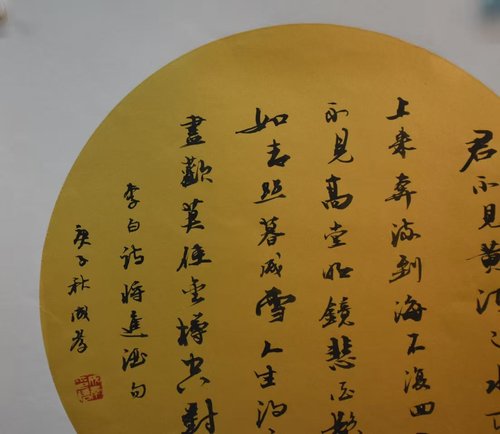 君不見黄河之水
上来奔流到海不復回
不見高堂明鏡悲白髮
如青丝暮成雪人生得
盡歡莫使金樽空對
李白詩将進酒句
庚子秋